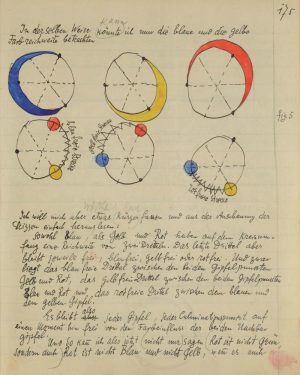 175
In derselben Weise kann
könnte ich nun die blaue und die gelbe
Farbreichweite betrachten
fig. 5
blaufreie Breite
gelbfreie
rotfreie Breite
Ich will mich aber etwas kürzer fassen und aus der Anschauung der
Skizzen einfach herauslesen:
Sowohl Blau, als Gelb und Rot haben auf dem
eine Reichweite von zwei Dritteln. Das letzte Drittel aber
bleibt jeweils frei, blaufrei, gelbfrei oder rotfrei. Und zwar
liegt das blaufreie Drittel zwischen den beiden Gipfelpunkten
Gelb und Rot, das gelbfreie Drittel zwischen den beiden Gipfelpunkten
Blau und Rot und das rotfreie Drittel zwischen dem blauen und
dem gelben Gipfel.
Es bleibt also jeder Gipfel, jeder Culminationspunkt auf
einen Moment hin frei von den Farbeinflüssen der beiden Nachbar
gipfel.
Und so kann ich also jetzt nicht nur sagen: Rot ist nicht Grün
sondern auch Rot ist nicht Blau und nicht Gelb, wenn es auch